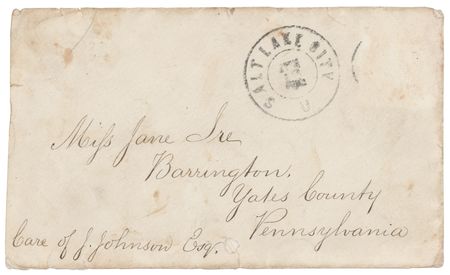 SALT LAKE CITY
U
Miss Jane Ire
Barrington.
Yates County
Pennsylvania
Care of J. Johnson Esq.